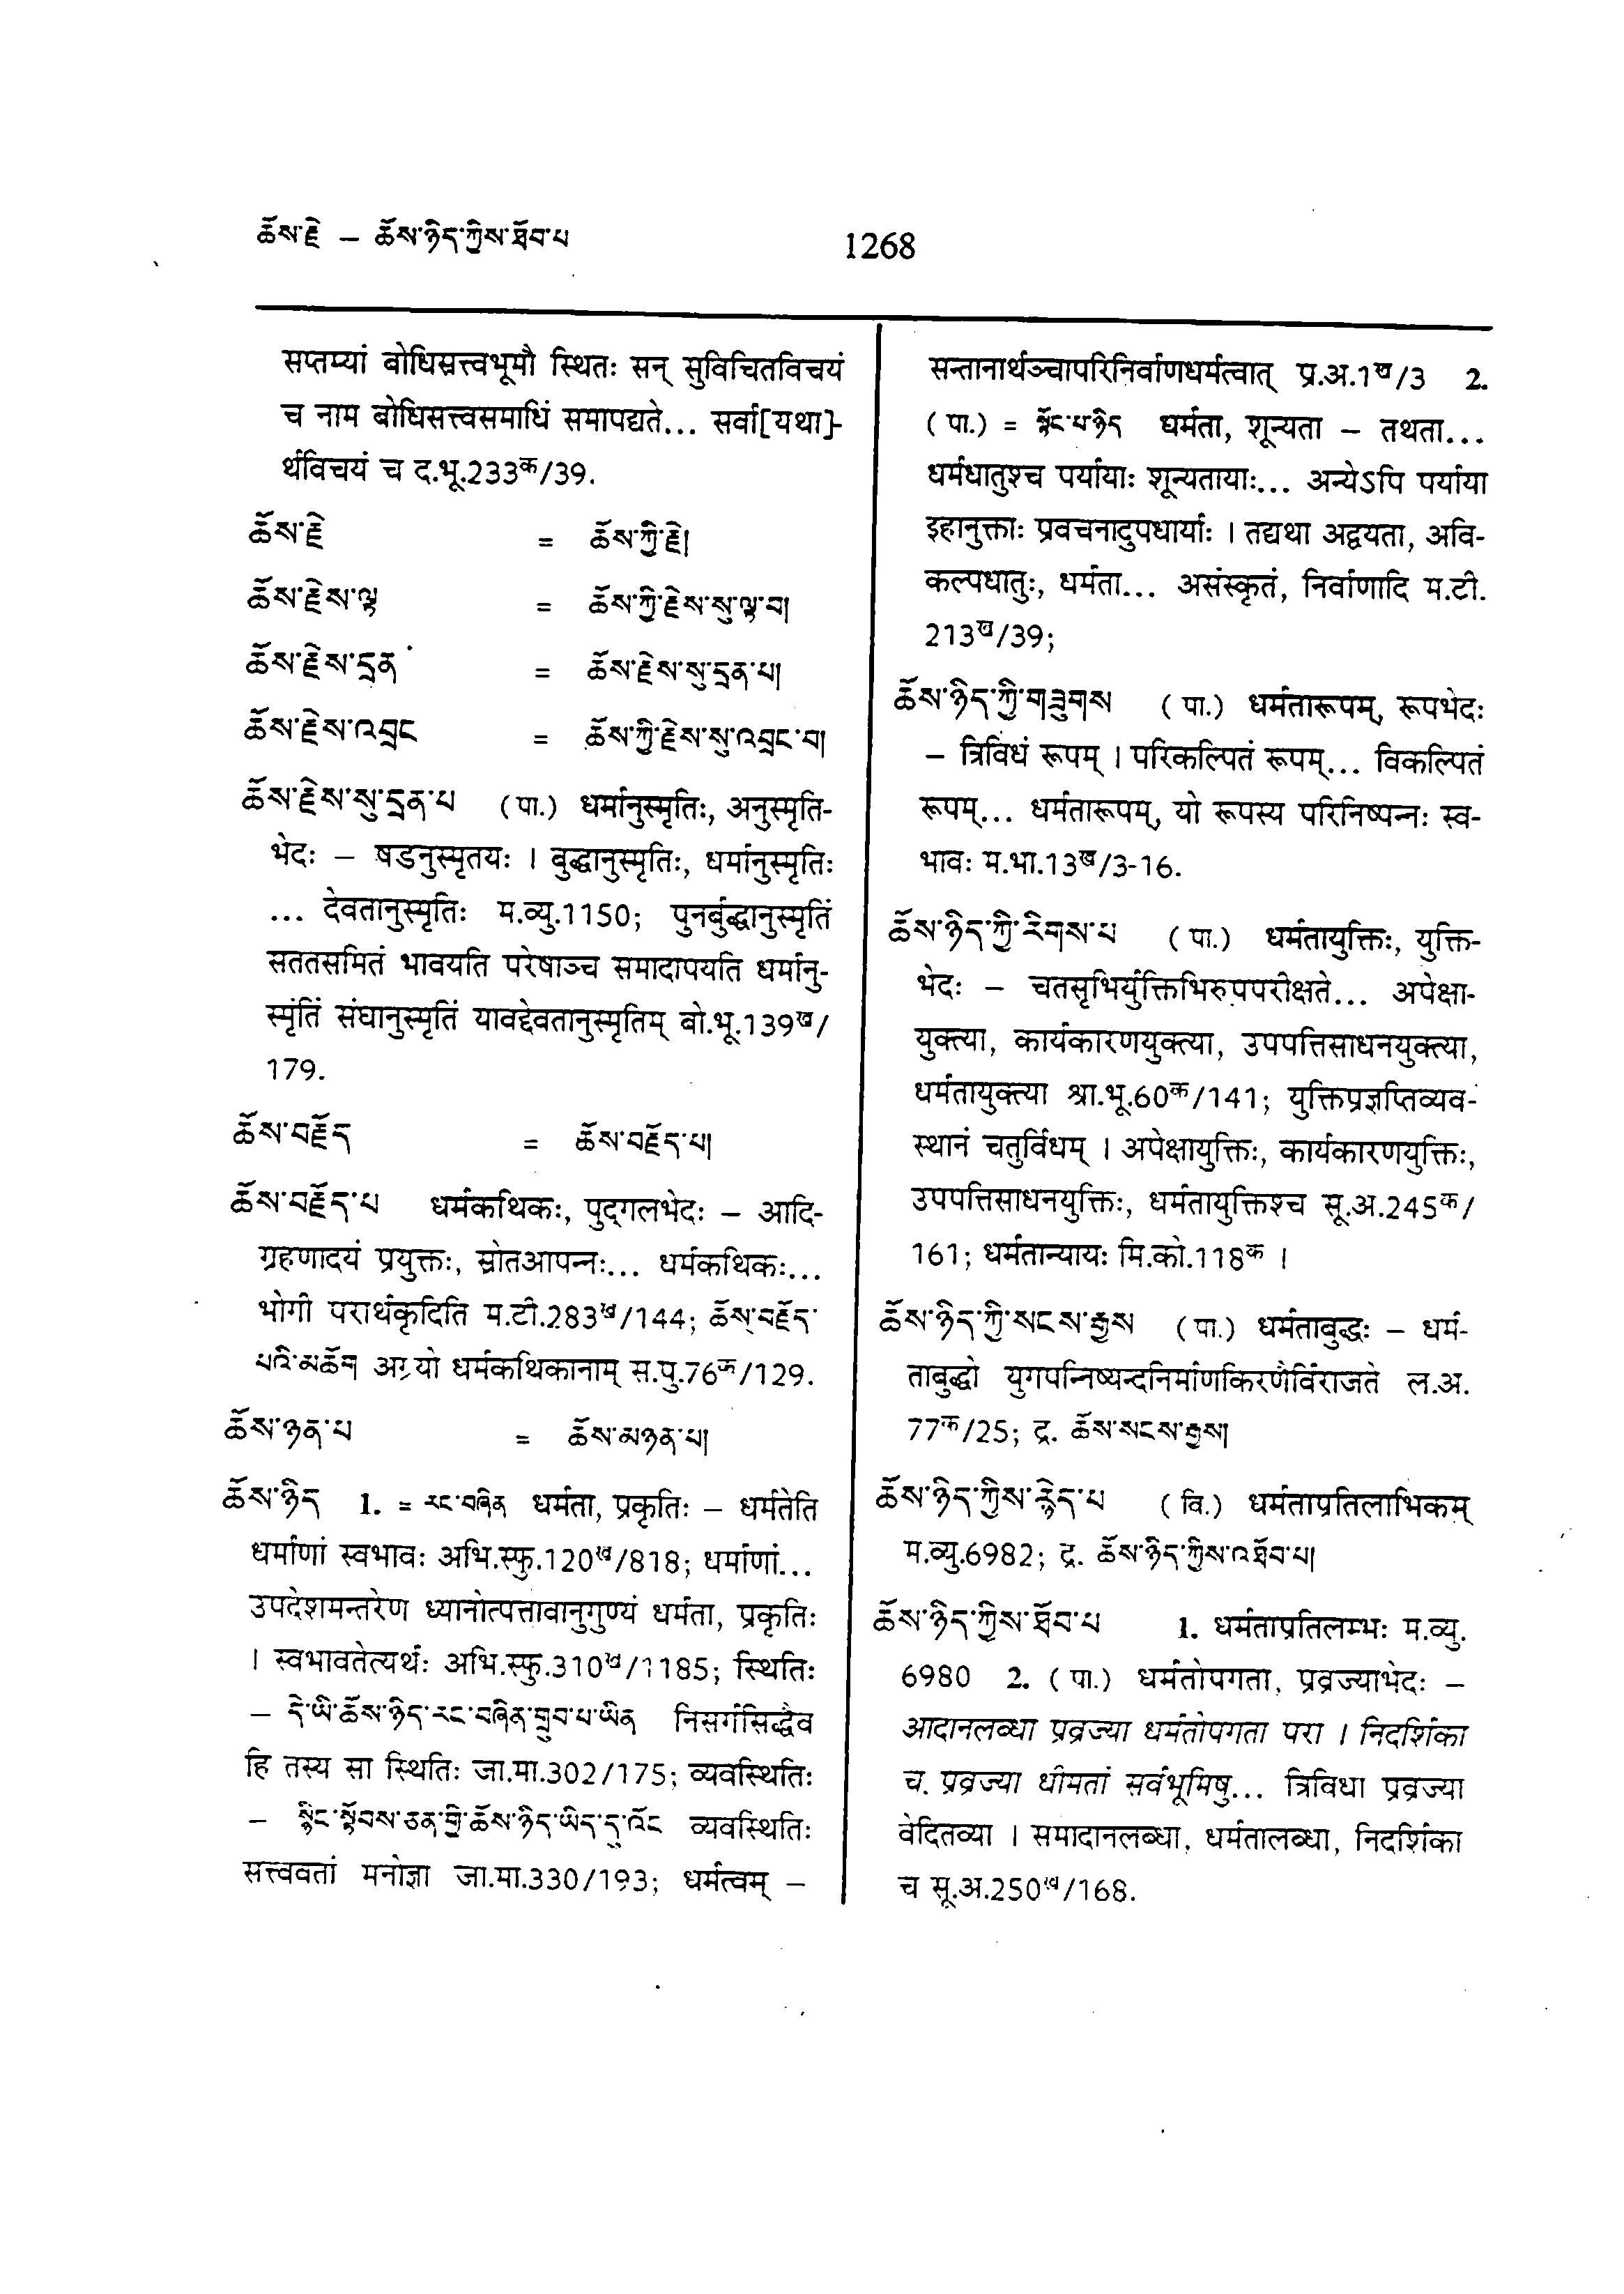 ཆོས་རྗེ – ཆོས་ཉིད་ཀྱིས་ཐོབ་པ
1268
सप्तम्यां बोधिसत्त्वभूमौ स्थितः सन् सुविचितविचयं
च नाम बोधिसत्त्वसमाधिं समापद्यते... सर्वा[यथा]-
र्थविचयं च द.भू.233क/39.
ཆོས་རྗེ = ཆོས་ཀྱི་རྗེ།
ཆོས་རྗེས་ལྟ = ཆོས་ཀྱི་རྗེས་སུ་ལྟ་བ།
ཆོས་རྗེས་དྲན = ཆོས་རྗེས་སུ་དྲན་པ།
ཆོས་རྗེས་འབྲང = ཆོས་ཀྱི་རྗེས་སུ་འབྲང་བ།
ཆོས་རྗེས་སུ་དྲན་པ (पा.) धर्मानुस्मृतिः, अनुस्मृति-
भेदः – षडनुस्मृतयः । बुद्धानुस्मृतिः, धर्मानुस्मृतिः
... देवतानुस्मृतिः म.व्यु.1150; पुनर्बुद्धानुस्मृतिं
सततसमितं भावयति परेषाञ्च समादापयति धर्मानु-
स्मृतिं संघानुस्मृतिं यावद्देवतानुस्मृतिम् बो.भू.139ख/
179.
ཆོས་བརྗོད = ཆོས་བརྗོད་པ།
ཆོས་བརྗོད་པ धर्मकथिकः, पुद्गलभेदः – आदि-
ग्रहणादयं प्रयुक्तः, स्रोतआपन्नः... धर्मकथिकः...
भोगी परार्थकृदिति म.टी.283ख/144; ཆོས་བརྗོད་
པའི་མཆོག अग्र्यो धर्मकथिकानाम् स.पु.76क/129.
ཆོས་ཉན་པ = ཆོས་མཉན་པ།
ཆོས་ཉིད 1. = རང་བཞིན धर्मता, प्रकृतिः – धर्मतेति
धर्माणां स्वभावः अभि.स्फु.120ख/818; धर्माणां...
उपदेशमन्तरेण ध्यानोत्पत्तावानुगुण्यं धर्मता, प्रकृतिः
। स्वभावतेत्यर्थः अभि.स्फु.310ख/1185; स्थितिः
– དེ་ཡི་ཆོས་ཉིད་རང་བཞིན་གྲུབ་པ་ཡིན निसर्गसिद्धैव
हि तस्य सा स्थितिः जा.मा.302/175; व्यवस्थितिः
– སྙིང་སྟོབས་ཅན་གྱི་ཆོས་ཉིད་ཡིད་དུ་འོང व्यवस्थितिः
सत्त्ववतां मनोज्ञा जा.मा.330/193; धर्मत्वम् –
सन्तानार्थञ्चापरिनिर्वाणधर्मत्वात् प्र.अ.1ख/3 2.
(पा.) = སྟོང་པ་ཉིད धर्मता, शून्यता – तथता...
धर्मधातुश्च पर्यायाः शून्यतायाः... अन्येऽपि पर्याया
इहानुक्ताः प्रवचनादुपधार्याः । तद्यथा अद्वयता, अवि-
कल्पधातुः, धर्मता... असंस्कृतं, निर्वाणादि म.टी.
213ख/39;
ཆོས་ཉིད་ཀྱི་གཟུགས (पा.) धर्मतारूपम्, रूपभेदः
– त्रिविधं रूपम् । परिकल्पितं रूपम्... विकल्पितं
रूपम्... धर्मतारूपम्, यो रूपस्य परिनिष्पन्नः स्व-
भावः म.भा.13ख/3-16.
ཆོས་ཉིད་ཀྱི་རིགས་པ (पा.) धर्मतायुक्तिः, युक्ति-
भेदः – चतसृभिर्युक्तिभिरुपपरीक्षते... अपेक्षा-
युक्त्या, कार्यकारणयुक्त्या, उपपत्तिसाधनयुक्त्या,
धर्मतायुक्त्या श्रा.भू.60क/141; युक्तिप्रज्ञप्तिव्यव-
स्थानं चतुर्विधम् । अपेक्षायुक्तिः, कार्यकारणयुक्तिः,
उपपत्तिसाधनयुक्तिः, धर्मतायुक्तिश्च सू.अ.245क/
161; धर्मतान्यायः मि.को.118क ।
ཆོས་ཉིད་ཀྱི་སངས་རྒྱས (पा.) धर्मताबुद्धः – धर्म-
ताबुद्धो युगपन्निष्यन्दनिर्माणकिरणैर्विराजते ल.अ.
77क/25; द्र. ཆོས་སངས་རྒྱས།
ཆོས་ཉིད་ཀྱིས་རྙེད་པ (वि.) धर्मताप्रतिलाभिकम्
म.व्यु.6982; द्र. ཆོས་ཉིད་ཀྱིས་འཐོབ་པ།
ཆོས་ཉིད་ཀྱིས་ཐོབ་པ 1. धर्मताप्रतिलम्भः म.व्यु.
6980 2. (पा.) धर्मतोपगता, प्रव्रज्याभेदः –
आदानलब्धा प्रव्रज्या धर्मतोपगता परा । निदर्शिका
च. प्रव्रज्या धीमतां सर्वभूमिषु... त्रिविधा प्रव्रज्या
वेदितव्या । समादानलब्धा, धर्मतालब्धा, निदर्शिका
च सू.अ.250ख/168.